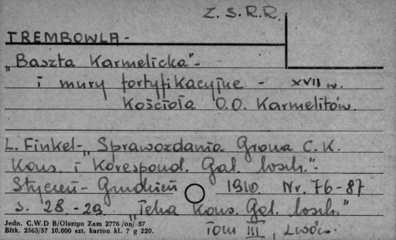 Z. S. R. R.
TREMBOWLA -
„Baszta Karmelicka" -
i mury fortyfikacyjne - XVII w.
Kościoła O.O. Karmelitów.
L. Finkel - „Sprawozdania Grona C. K.
Kons. i Korespond. Gal. wsch." -
Styczeń - Grudzień 1910. Nr. 76-87
s. 28-29. "Teka Kons. Gal. wsch."
Jedn. C.W D B/Olsztyn Zam 2776/on/57
Bltk. 2563/57 10.000 szt. karton kl. 7 g 220.
Tom III, Lwów.